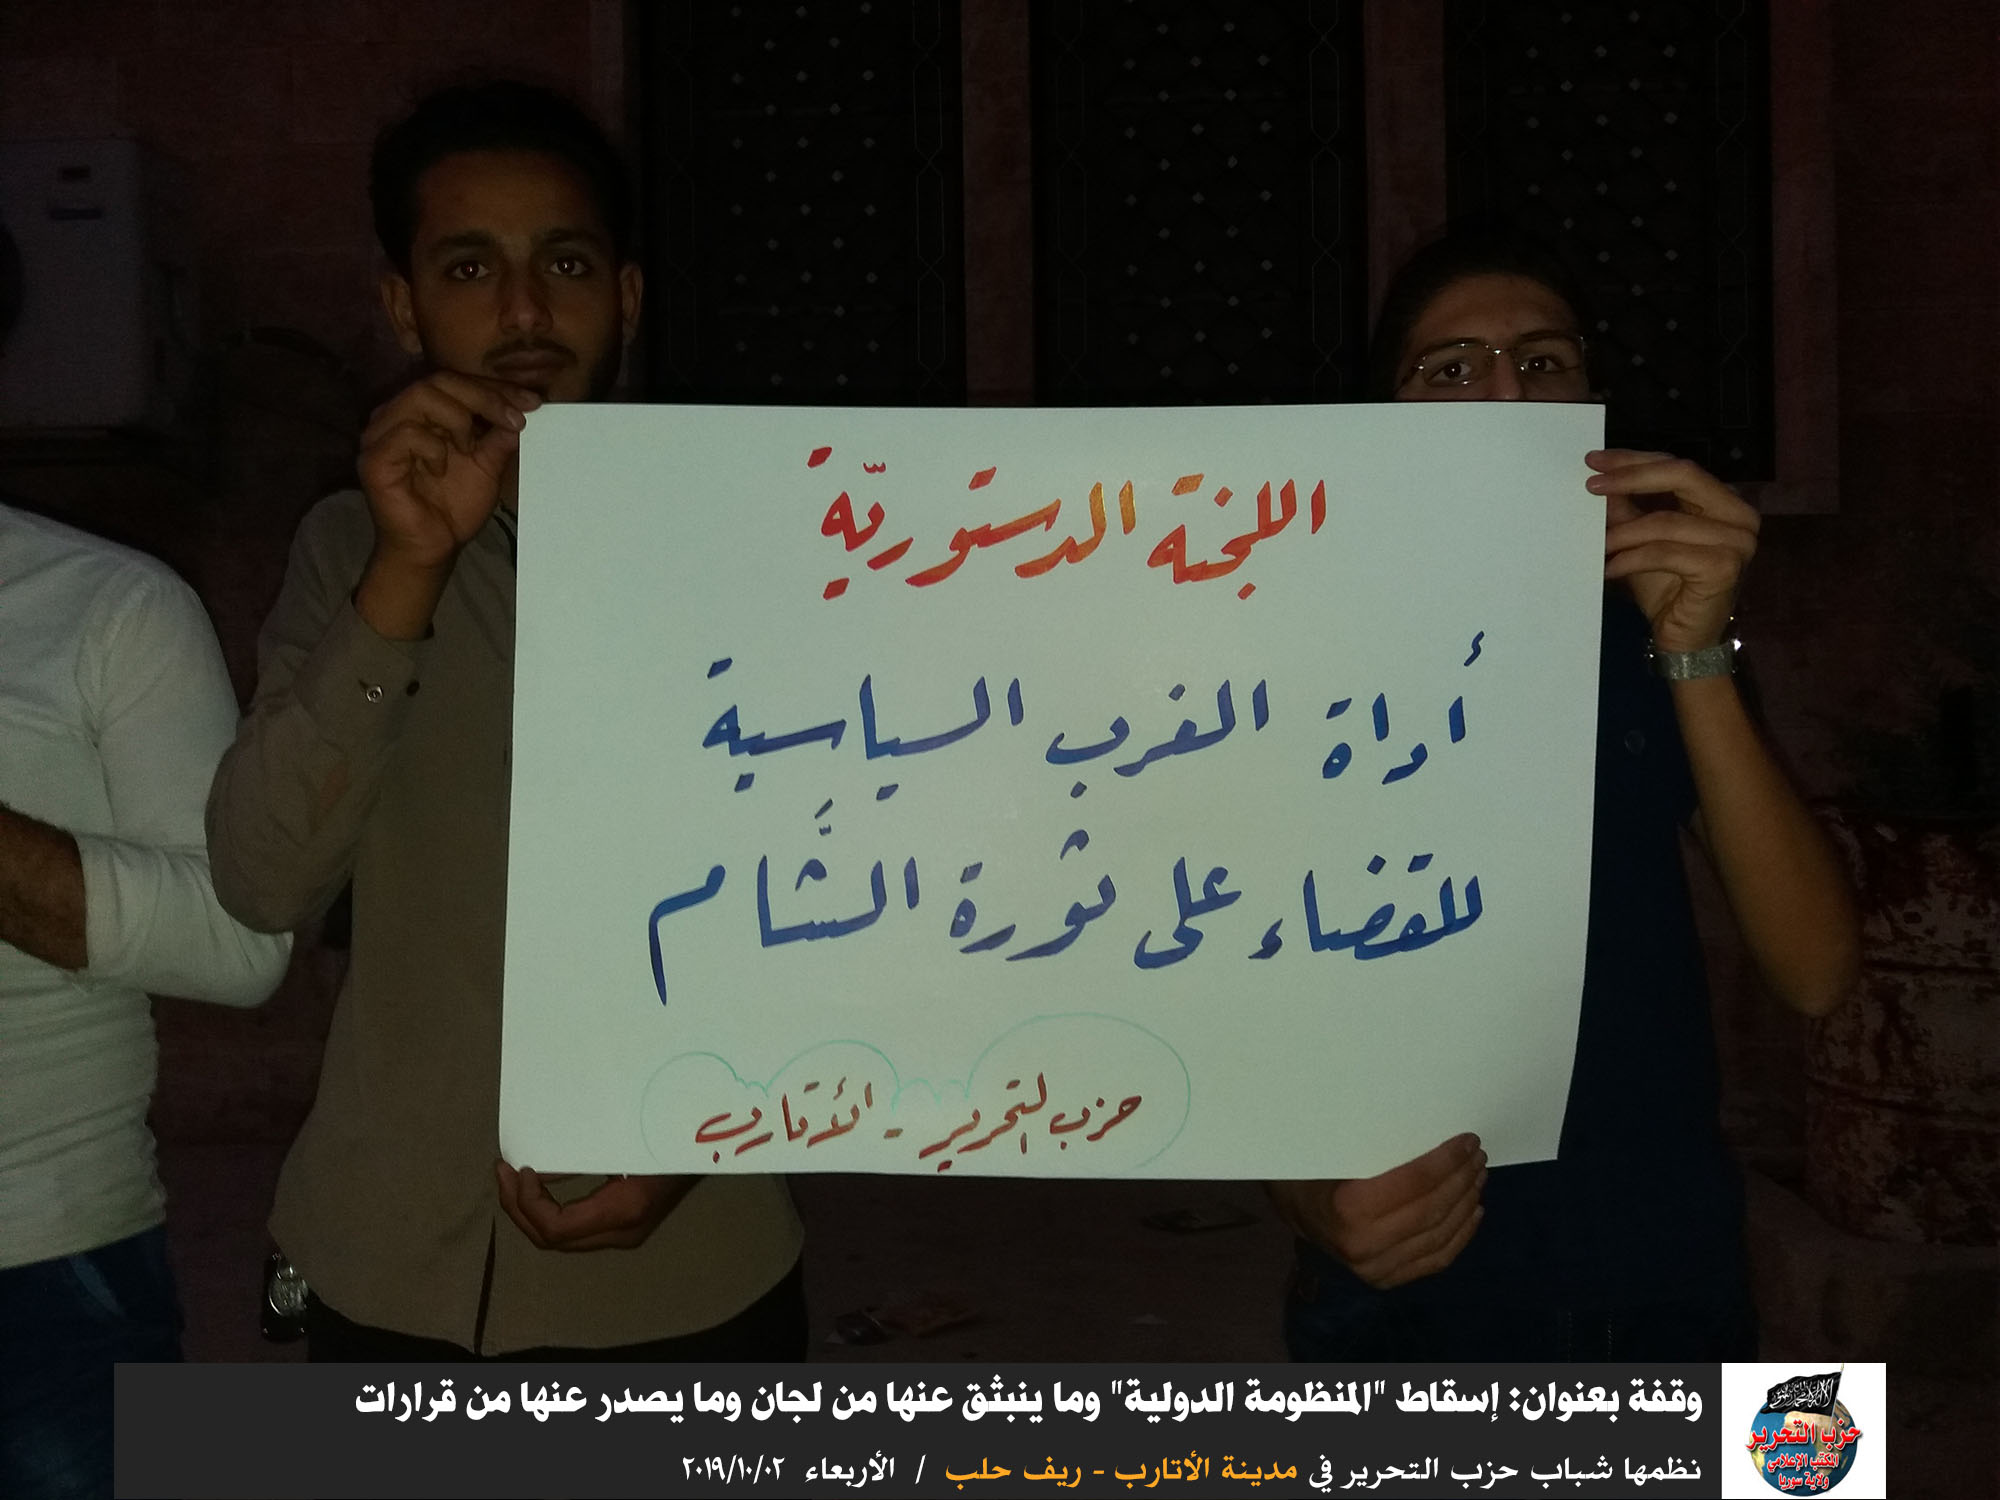 اللجنة الدستوريّة
أداة الغرب السياسية
للقضاء على ثورة الشَّام
حزب التحرير - الأتارب
وقفة بعنوان: إسقاط "المنظومة الدولية" وما ينبثق عنها من لجان وما يصدر عنها من قرارات
نظمها شباب حزب التحرير في مدينة الأتارب - ريف حلب / الأربعاء ٢٠١٩/١٠/٠٢
حزب التحرير
المكتب الإعلامي
ولاية سوريا